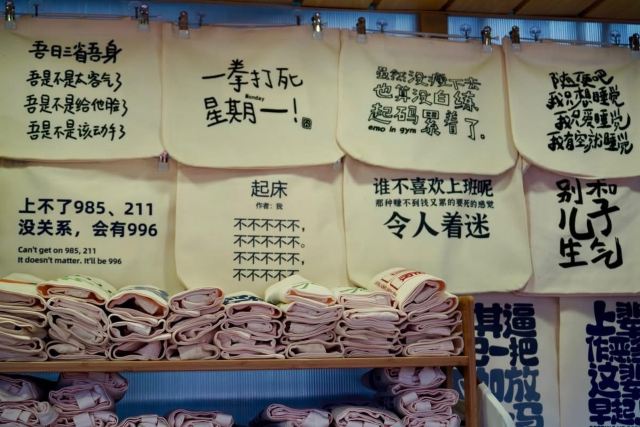 吾日三省吾身
吾是不是太客气了
吾是不是给他脸了
吾是不是该动手了
一拳打死
Monday
星期一!
虽然没瘦下去
也算没白练
起码累着了。
emo in gym
随便吧
我只想睡觉
我只爱睡觉
我有空就睡觉
上不了985、211
没关系，会有996
Can't get on 985, 211
It doesn't matter. It'll be 996
起床
作者：我
不不不不不，
不不不不不。
不不不不不，
不不不不不
谁不喜欢上班呢
那种赚不到钱又累的要死的感觉
令人着迷
别和
儿子
生气
逼
一把
放
上
作
这
早